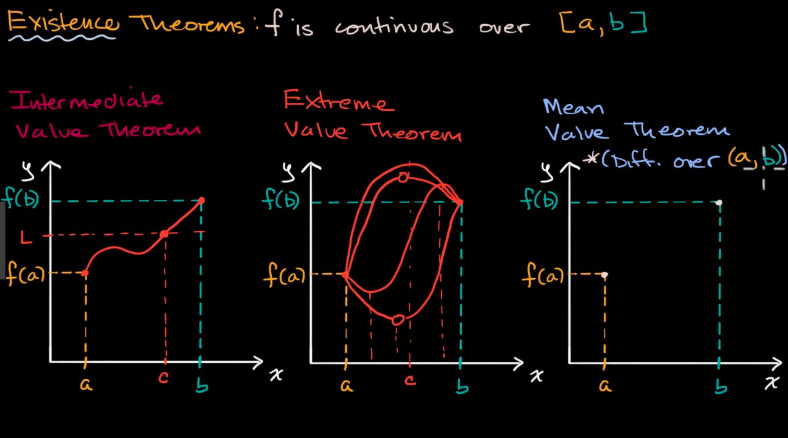 Existence Theorems: f is continuous over [a,b]
Intermediate
Value Theorem
y
f(b)
L
f(a)
a
c
b
x
Extreme
Value Theorem
y
f(b)
f(a)
a
c
b
x
Mean
Value Theorem
*(Diff. over (a,b))
y
f(b)
f(a)
a
b
x